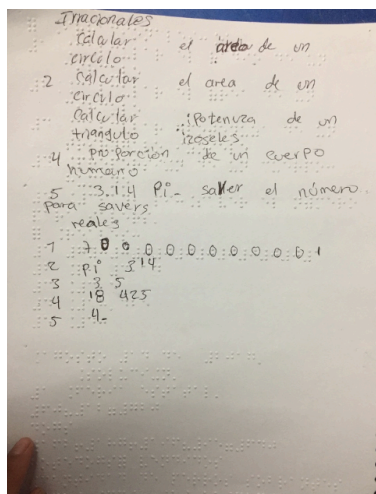 Irracionales
calcular el area de un
circulo
2 calcular el area de un
circulo
calcular ipotenuza de un
triangulo izoseles
4 proporción de un cuerpo
humano
5 3.1.4 Pi_ saver el número.
para savers
reales
1 7 0 0 0 0 0 0 0 0 0 1
2 pi 314
3 3 5
4 18 425
5 4-